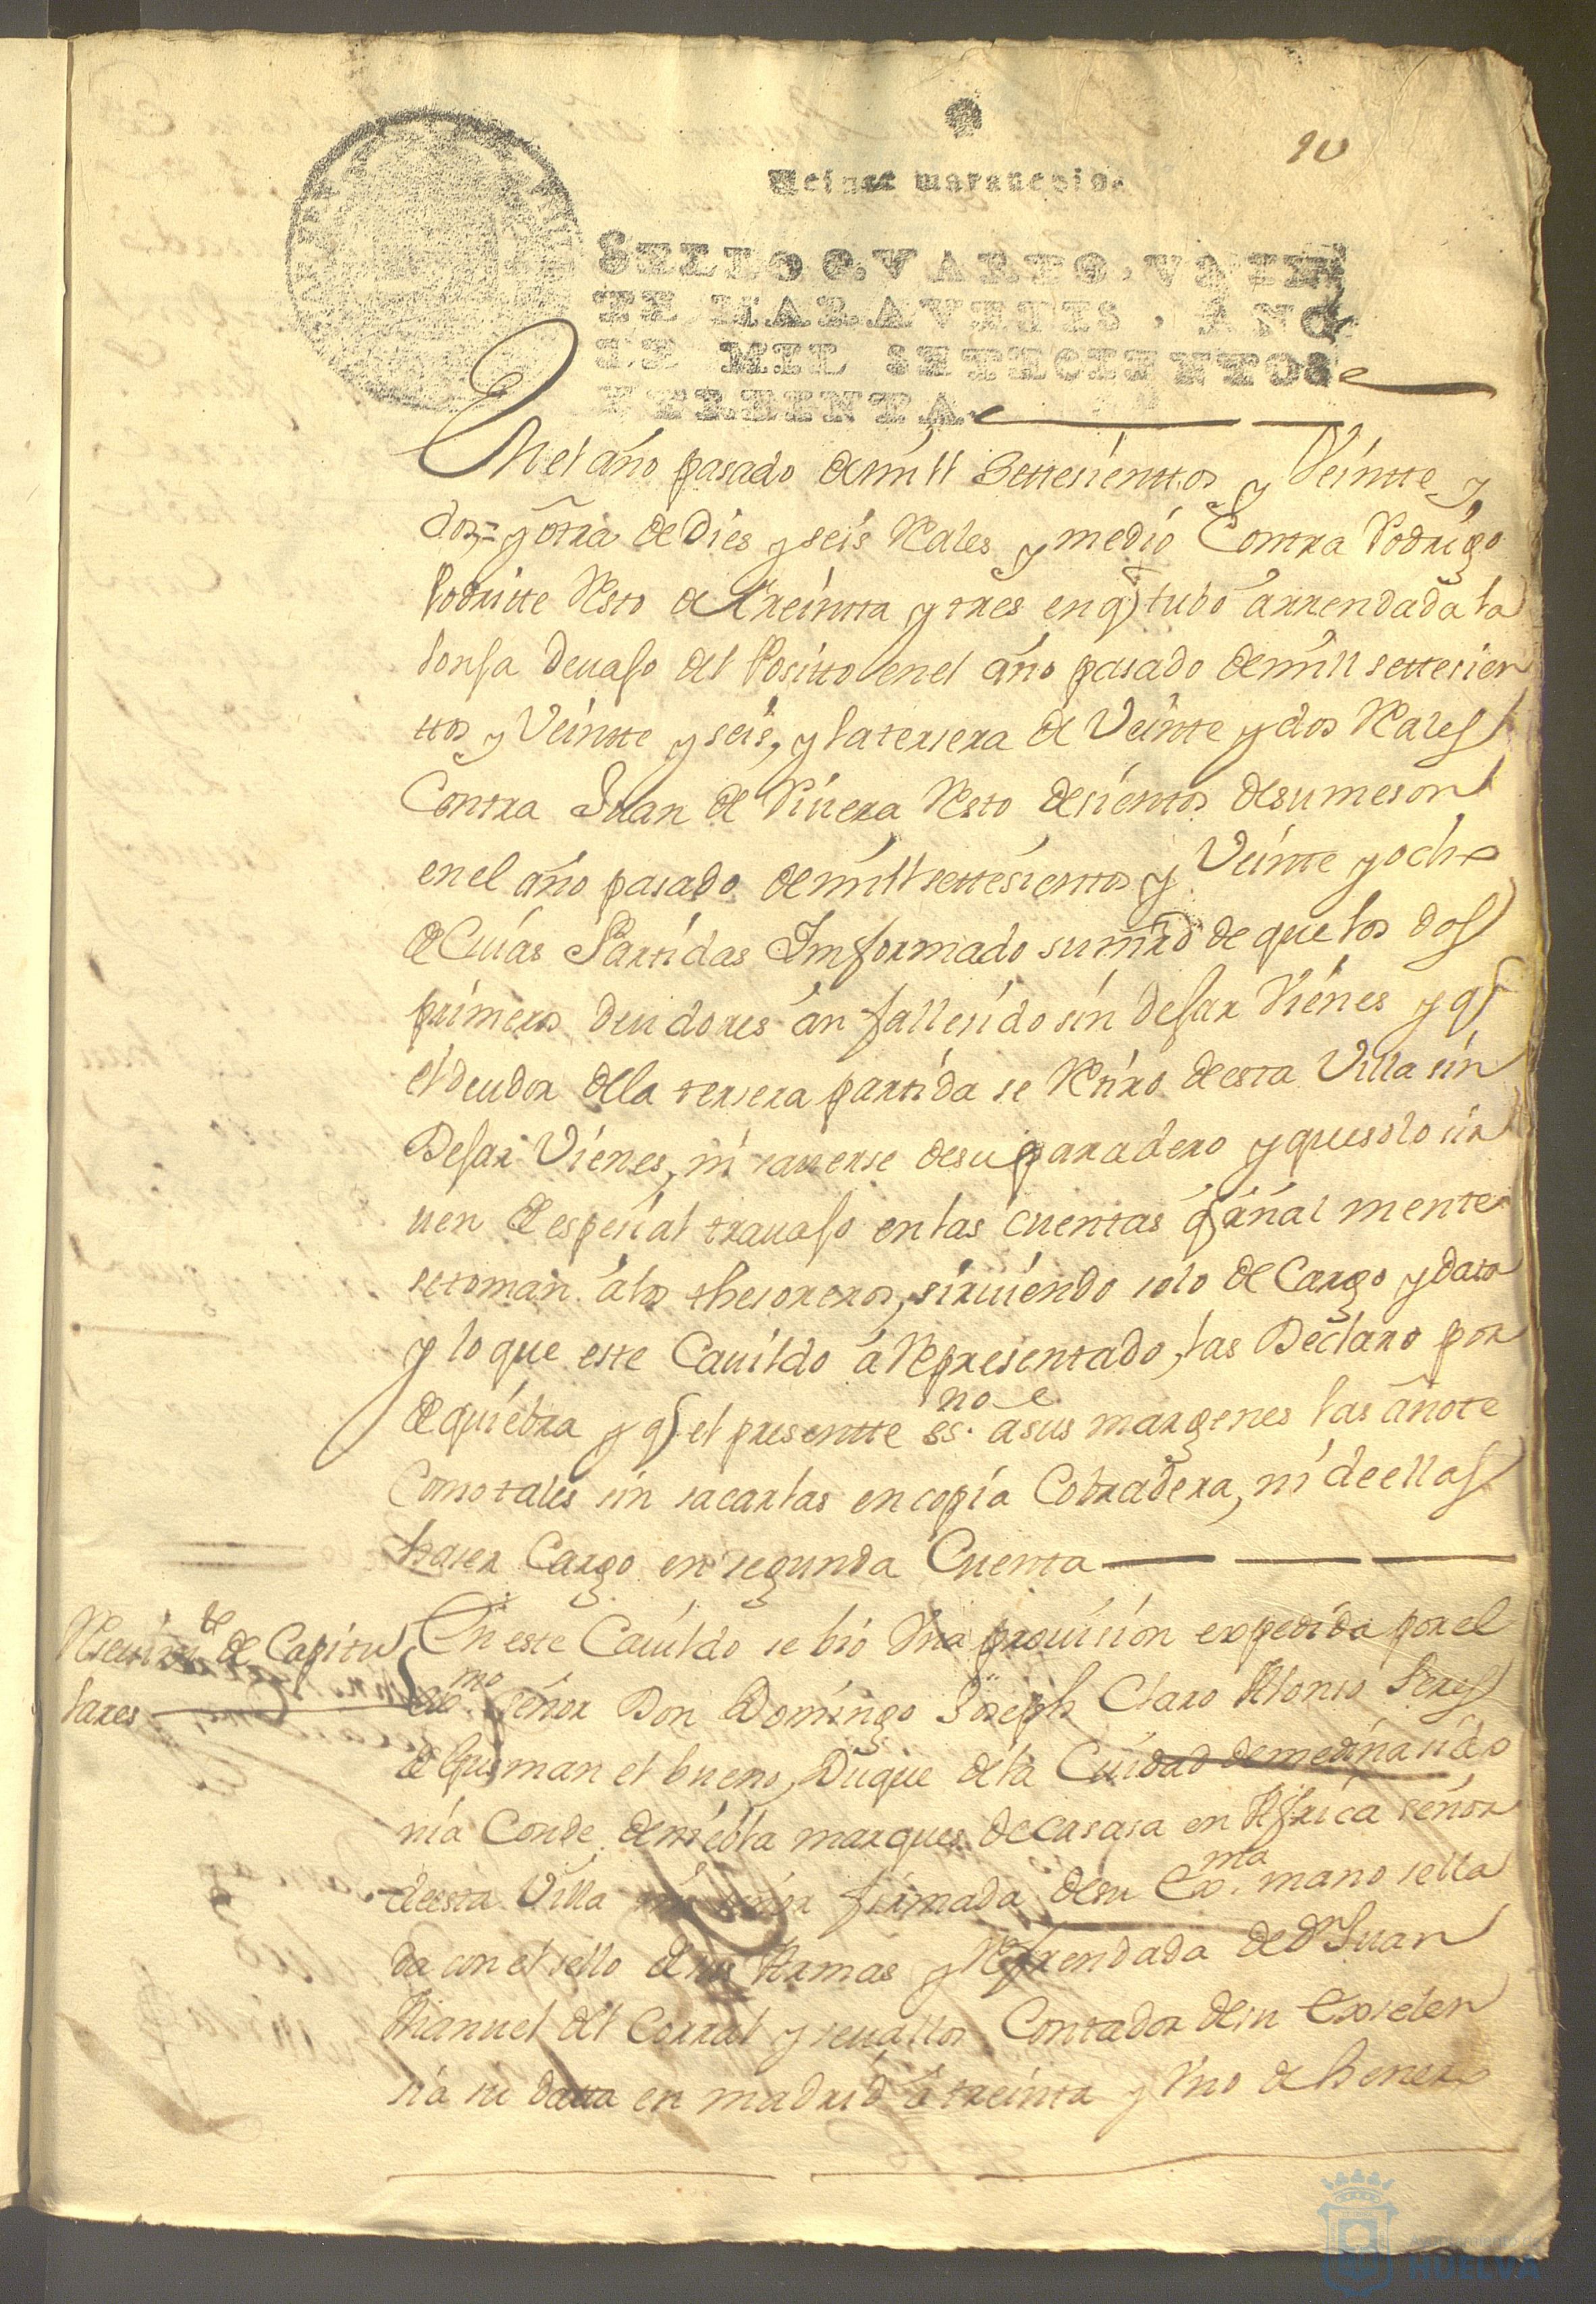 90
Veinte marauedis.
SELLO QVARTO, VEIN
TE MARAVEDIS, AÑO
DE MIL SETECIENTOS
Y TREINTA.
En el año pasado de mill settesienttos y Veintte y
dos = y otra de Dies y seis Rales y medio Contra Rodrigo
Resto de treintta y tres en q tubo arrendada la
lonja devajo del Positto en el año pasado de mill settesien
ttos y Veintte y seis, y la tersera de Veinte y dos Rales
Contra Juan de Riuera Resto de sientos de su meson
en el año pasado de mill settesientos y Veinte y ocho
de Cuias Partidas Imformado su mrd de que los dos
primeros deudores an fallesido sin Dejar Vienes y q
el deudor de la tersera partida se Retiro de esta Villa sin
Dejar Vienes, ni sauerse de su paradero y que solo sir
uen de espesial trauajo en las cuentas q anal mente
se toman a los thesoreros, siruiendo solo de Cargo y data
y lo que este Cauildo a Representado, las Declaro por
de quiebra y q el presentte es.no a sus margenes las anote
Como tales sin sacarlas en copia Cobradera, ni de ellas
haser Cargo en segunda Cuenta
Reciuimto de Capitu
lares
En este Cauildo se bio Vna prouision expedida por el
exmo señor Don Domingo Joseph Claro Alonso Peres
de Gusman el bueno, Duque de la Ciudad de medina sido
nia Conde de niebla marques de casasa en Africa señor
de esta Villa mi señor firmada de su Exma mano sella
da con el sello de sus Armas y Refrendada de Dn Juan
Manuel del Corral y seuallos Contador de su Exselen
sia su datta en madrid a treinta y Vno de henero
HUELVA